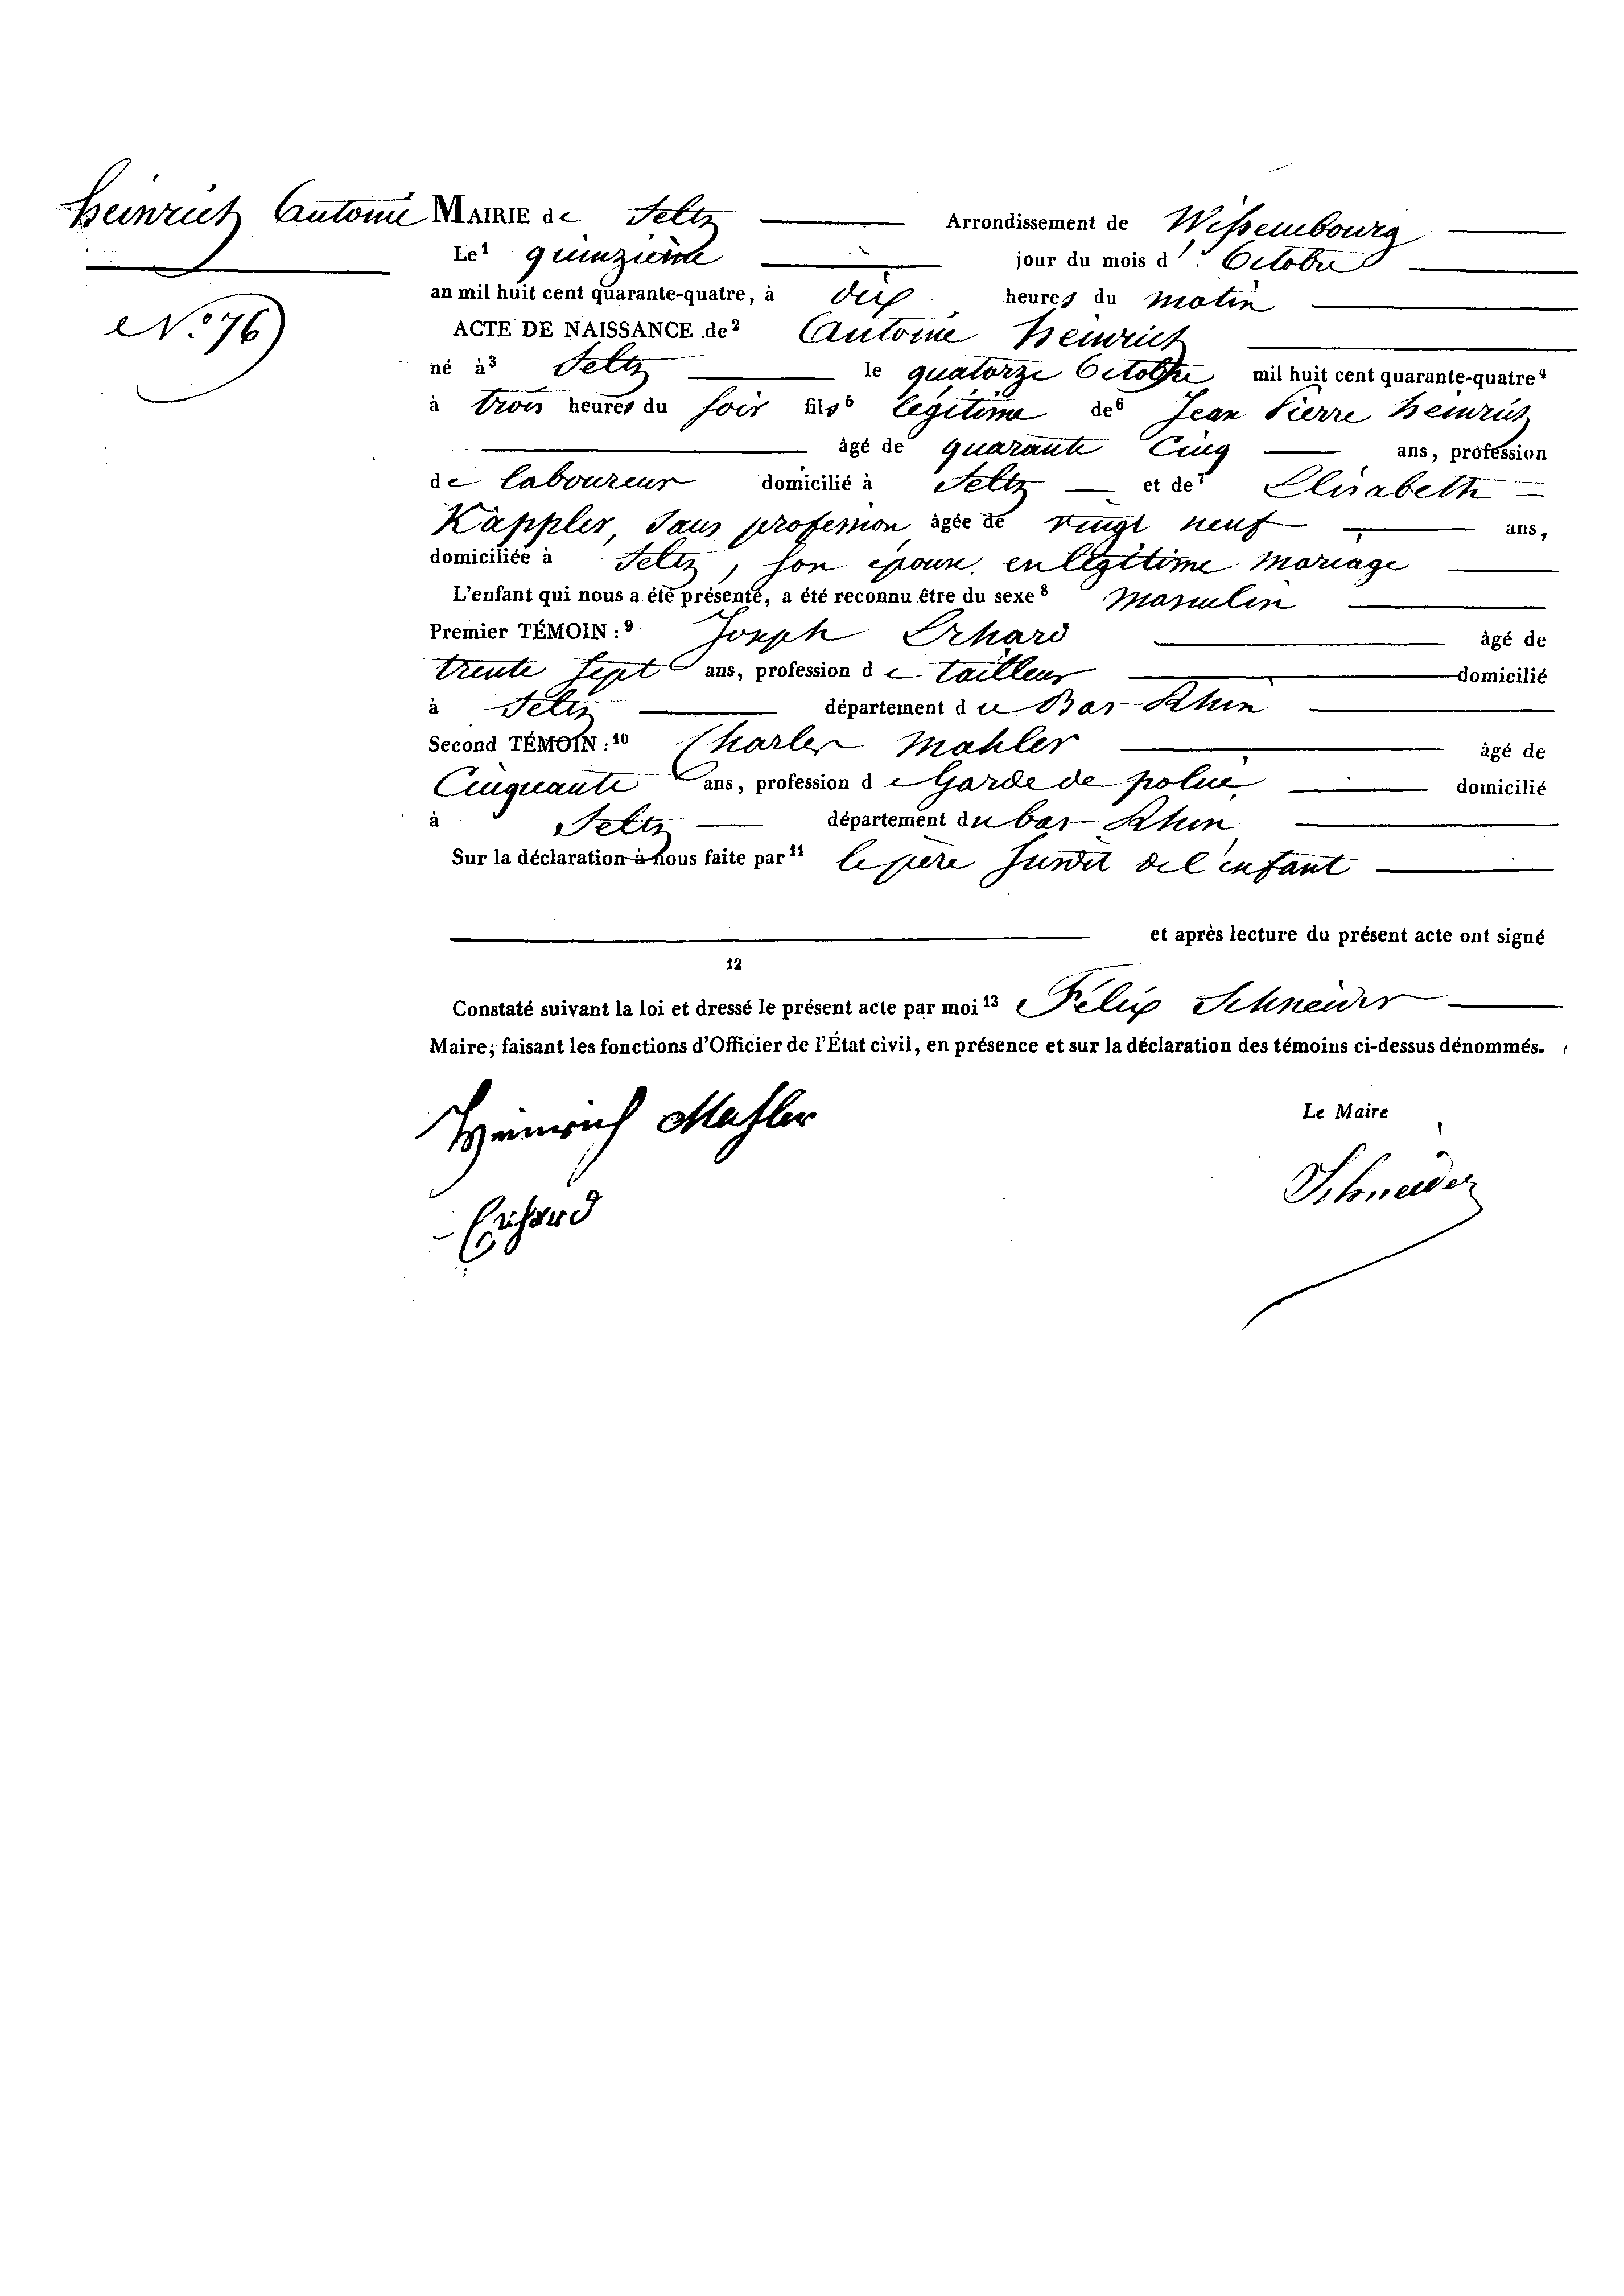 Heinrich Antoine MAIRIE de Seltz Arrondissement de Wissembourg
Le¹ quinzième jour du mois d' Octobre
N.º 76
an mil huit cent quarante-quatre, à dix heures du matin
ACTE DE NAISSANCE de² Antoine Heinrich
né à³ Seltz le quatorze Octobre mil huit cent quarante-quatre⁴
à trois heures du soir fils⁵ légitime de⁶ Jean Pierre Heinrich
âgé de quarante Cinq ans, profession
de laboureur domicilié à Seltz et de⁷ Elisabeth
Kappler, Sans profession âgée de vingt neuf ans,
domiciliée à Seltz, son épouse en légitime mariage
L'enfant qui nous a été présenté, a été reconnu être du sexe⁸ masculin
Premier TÉMOIN :⁹ Joseph Erhard âgé de
trente sept ans, profession de tailleur domicilié
à Seltz département du Bas-Rhin
Second TÉMOIN :¹⁰ Charles Mahler âgé de
Cinquante ans, profession de Garde de police domicilié
à Seltz département du bas-Rhin
Sur la déclaration à nous faite par¹¹ le père susdit de l'enfant
et après lecture du présent acte ont signé
12
Constaté suivant la loi et dressé le présent acte par moi¹³ Félix Schneider
Maire, faisant les fonctions d'Officier de l'État civil, en présence et sur la déclaration des témoins ci-dessus dénommés.
Heinrich Mahler
Le Maire
Schneider
Erhard